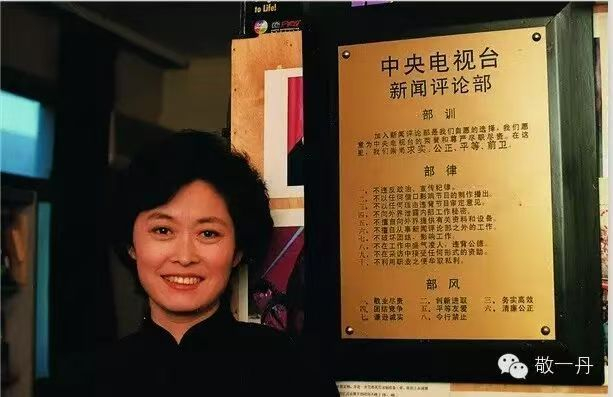 to Life!
中央电视台
新闻评论部
部 训
加入新闻评论部是我们自愿的选择，我们愿
意为中央电视台的荣誉和尊严尽职尽责。在这
里，我们崇尚求实、公正、平等、前卫。
部 律
一、不违反政治、宣传纪律。
二、不以任何借口影响节目的制作播出。
三、不以任何理由违背节目审定意见。
四、不向外界泄露内部工作秘密。
五、不擅自向外界提供有关资料和设备。
六、不擅自从事新闻评论部之外的工作。
七、不破坏团结、影响工作。
八、不在工作中盛气凌人、违背公德。
九、不在采访中接受任何形式的资助。
十、不利用职业之便牟取私利。
部 风
一、敬业尽责 二、创新进取 三、务实高效
四、团结竞争 五、平等友爱 六、清廉公正
七、谦逊诚实 八、令行禁止
敬一丹